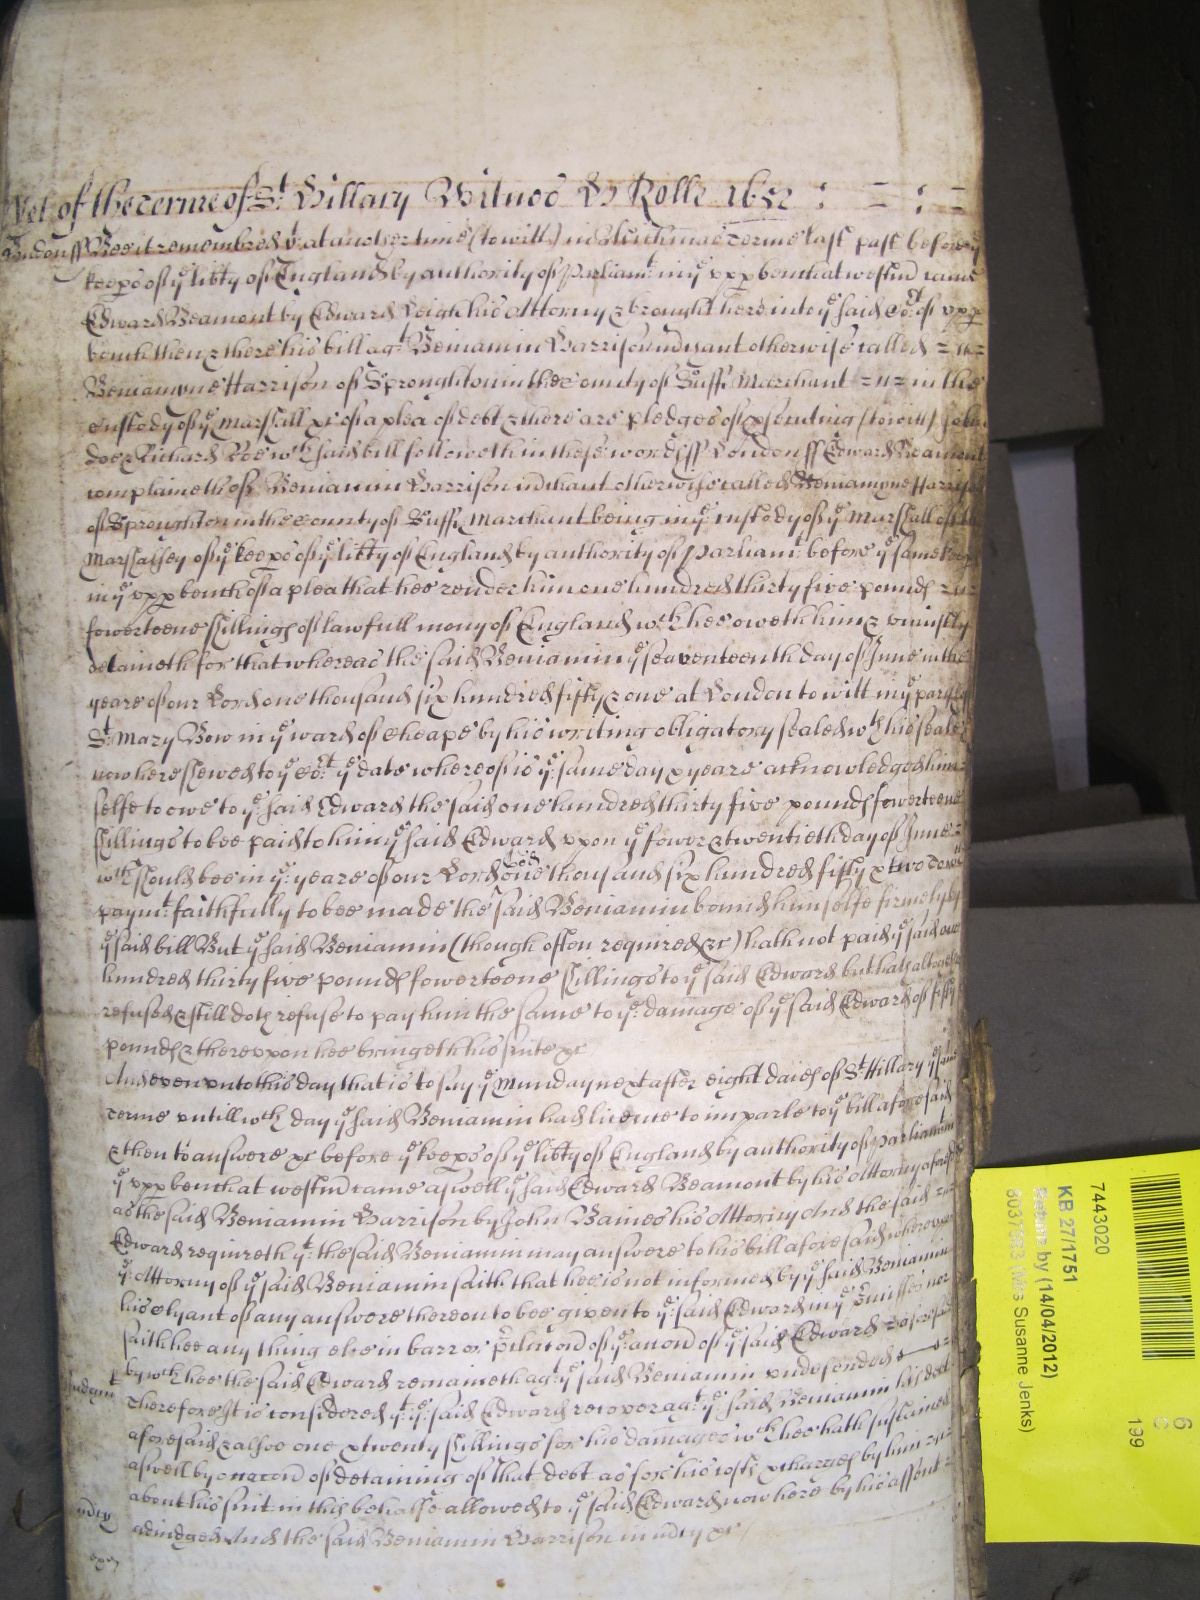 Yet of the terme of St. Hillary Witnes H Rolle 1652 : = : =
London ss Bee it remembred yt at another time (to witt) in Michmas Terme last past before ye
keeprs of ye libty of England by authority of Parliamt. in ye vpp bench at westmr came
Edward Beamont by Edward Leigh his Attorny & brought here into ye said Cort. of vpp
bench then & there his bill agt. Beniamin Harrison mchant otherwise called = n =
Beniamyne Harrison of Sproughton in the County of Suff. Marchant = n = in the
custody of ye Marshall &c of a plea of debt & there are pledges of psenting (to witt) John
Doe & Richard Roe wch said bill followeth in these words ss London ss Edward Beamont
complaineth of Beniamin Harrison mchant otherwise called Beniamyne Harrison
of Sproughton in the County of Suff. Marchant being in ye custody of ye Marshall of the
Marshalsey of ye keeprs of ye libty of England by authority of Parliamt. before ye same keeprs
in ye vpp bench of a plea that hee render him one hundred thirty five pounds
fowerteene shillings of lawfull mony of England wch hee oweth him & vniustly
detaineth for that whereas the said Beniamin ye seaventeenth day of June in the
yeare of our Lord one thousand six hundred fifty & one at London to witt in ye parish of
St. Mary Bow in ye ward of Cheape by his writing obligatory sealed wth his seale
now here shewed to ye Cort. ye date whereof is ye same day & yeare acknowledged him=
selfe to owe to ye said Edward the said one hundred thirty five pounds fowerteene
shillings to bee paid to him ye said Edward vpon ye fower & twentieth day of June =
wch should bee in ye yeare of our Lord God one thousand six hundred fifty & two to wch
paymt. faithfully to bee made the said Beniamin bound himselfe firmely by
ye said bill But ye said Beniamin (though often required &c) hath not paid ye said one
hundred thirty five pounds fowerteene shillings to ye said Edward but hath altogether
refused & still doth refuse to pay him the same to ye damage of ye said Edward of fifty
pounds & therevpon hee bringeth his suite &c
And even vnto this day that is to say ye Munday next after eight daies of St Hillary ye same
terme vntill wch day ye said Beniamin had licence to imparle to ye bill aforesaid
& then to answere &c before ye keeprs of ye libty of England by authority of Parliamt in
ye vpp bench at westmr came aswell ye said Edward Beamont by his Attorny aforesd
as the said Beniamin Harrison by John Baines his Attorny And the said
Edward requireth yt the said Beniamin may answere to his bill aforesaid wherevpon
ye Attorny of ye said Beniamin saith that hee is not informed by ye said Beniamin
his clyant of any answere thereon to bee given to ye said Edward in ye pmisses nor
saith hee any thing else in barr or pclusion of ye accon of ye said Edward aforesaid
by wch hee the said Edward remaineth agt. ye said Beniamin vndefended
Judgmt Therefore It is considered yt ye said Edward recover agt. ye said Beniamin his debt
aforesaid & alsoe one & twenty shillings for his damages wch hee hath sustained
aswell by occacon of detaining of that debt as for his costs & charges by him
about his suit in this behalfe allowed to ye said Edward now here by his assent =
mcy adiudged And the said Beniamin Harrison in mcy &c
7443020
KB 27/1751
Return by (14/04/2012)
(Mrs Susanne Jenks)
199